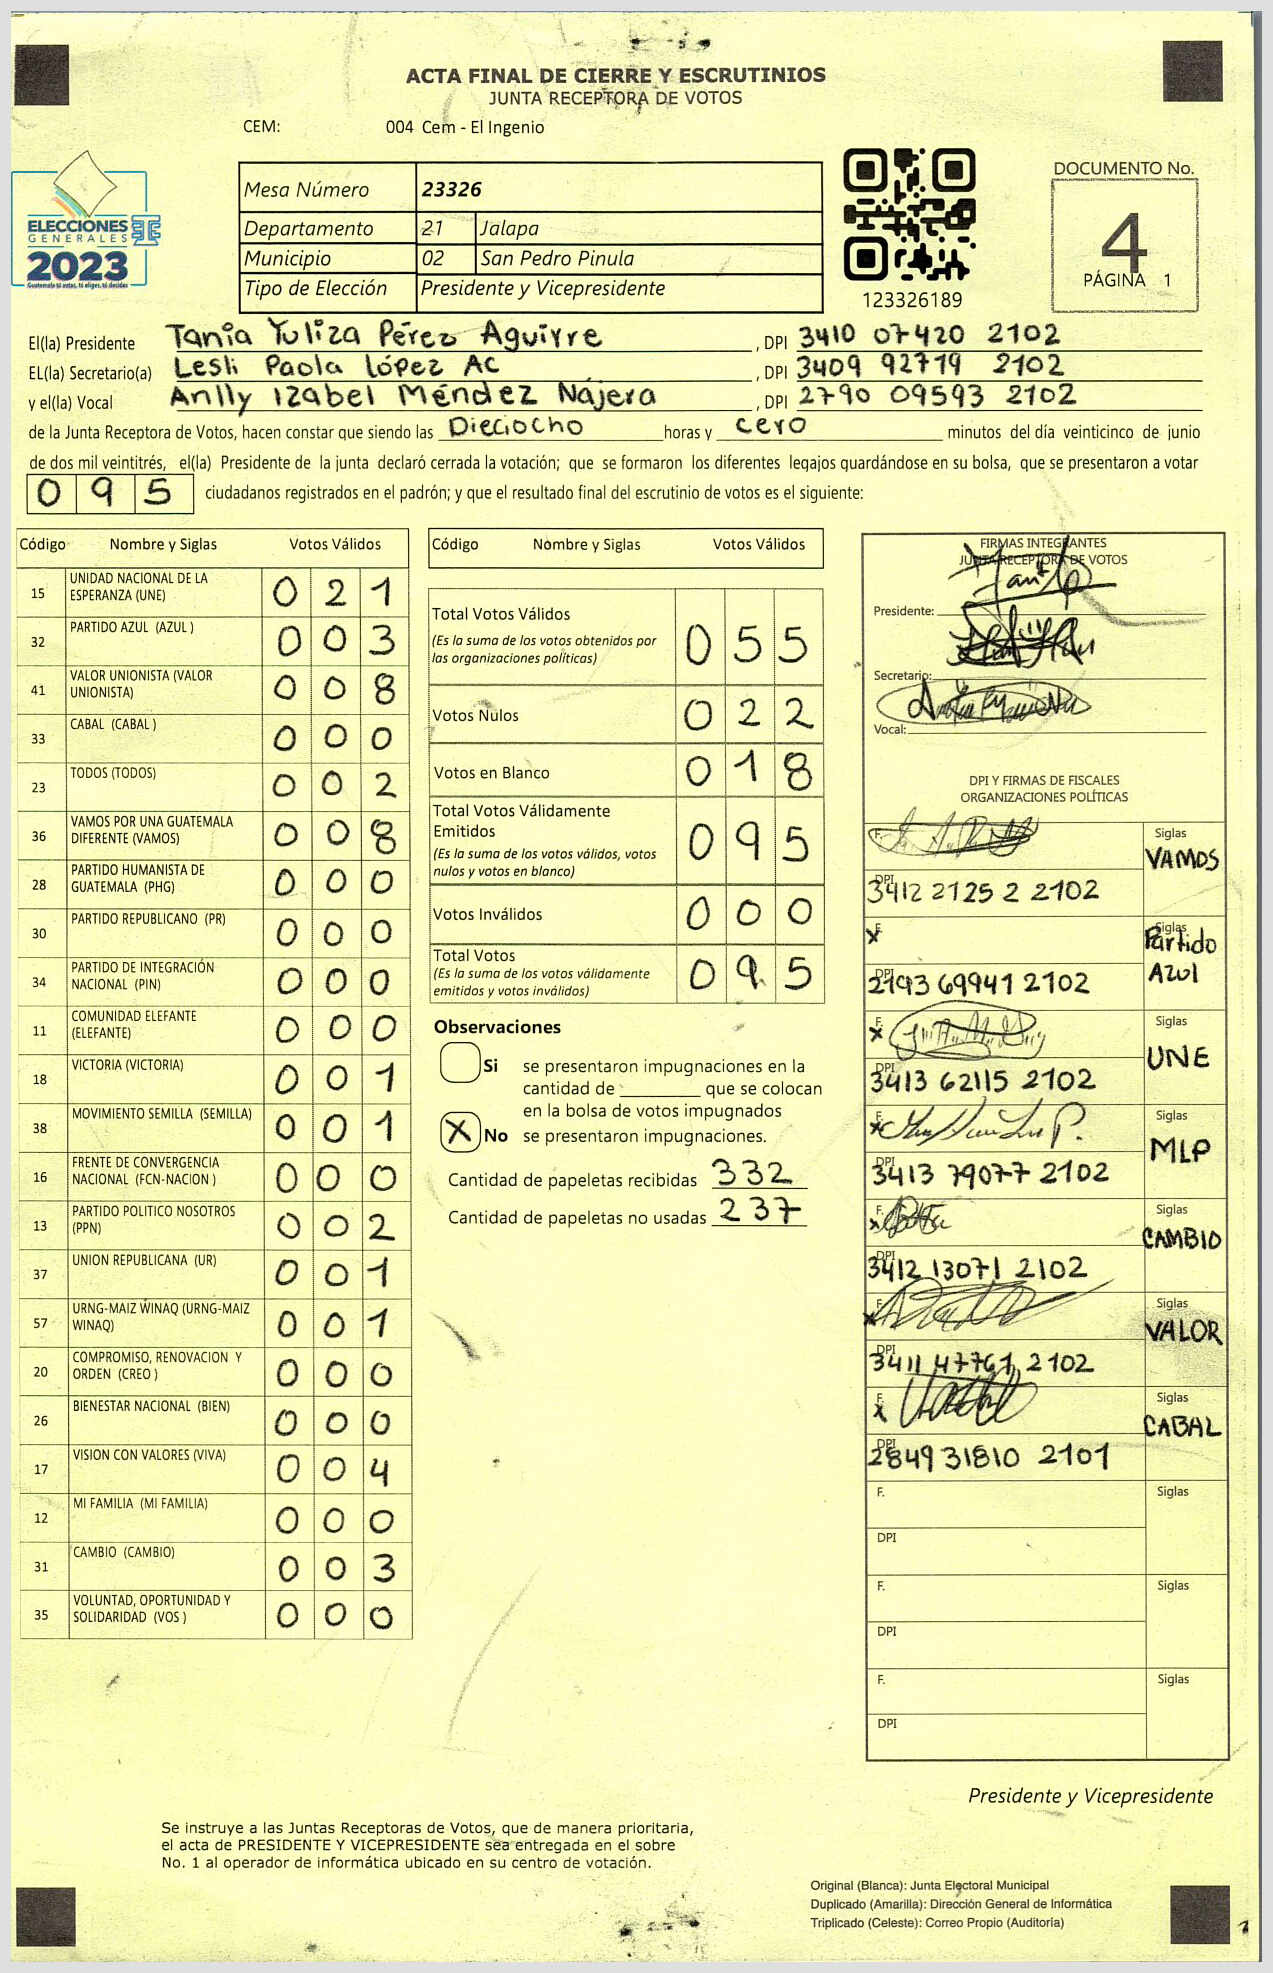 ACTA FINAL DE CIERRE Y ESCRUTINIOS
JUNTA RECEPTORA DE VOTOS
CEM: 004 Cem - El Ingenio
ELECCIONES
GENERALES
2023
Guatemala tú votas, tú eliges, tú decides
Mesa Número 23326
Departamento 21 Jalapa
Municipio 02 San Pedro Pinula
Tipo de Elección Presidente y Vicepresidente
123326189
DOCUMENTO No.
4
PÁGINA 1
El(la) Presidente Tania Yuliza Pérez Aguirre, DPI 3410 07420 2102
EL(la) Secretario(a) Lesli Paola López AC, DPI 3409 92719 2102
y el(la) Vocal Anlly Izabel Méndez Nájera, DPI 2790 09593 2102
de la Junta Receptora de Votos, hacen constar que siendo las Dieciocho horas y cero minutos del día veinticinco de junio
de dos mil veintitrés, el(la) Presidente de la junta declaró cerrada la votación; que se formaron los diferentes legajos guardándose en su bolsa, que se presentaron a votar
095 ciudadanos registrados en el padrón; y que el resultado final del escrutinio de votos es el siguiente:
Código Nombre y Siglas Votos Válidos
15 UNIDAD NACIONAL DE LA ESPERANZA (UNE) 021
32 PARTIDO AZUL (AZUL ) 003
41 VALOR UNIONISTA (VALOR UNIONISTA) 008
33 CABAL (CABAL ) 000
23 TODOS (TODOS) 002
36 VAMOS POR UNA GUATEMALA DIFERENTE (VAMOS) 008
28 PARTIDO HUMANISTA DE GUATEMALA (PHG) 000
30 PARTIDO REPUBLICANO (PR) 000
34 PARTIDO DE INTEGRACIÓN NACIONAL (PIN) 000
11 COMUNIDAD ELEFANTE (ELEFANTE) 000
18 VICTORIA (VICTORIA) 001
38 MOVIMIENTO SEMILLA (SEMILLA) 001
16 FRENTE DE CONVERGENCIA NACIONAL (FCN-NACION ) 000
13 PARTIDO POLITICO NOSOTROS (PPN) 002
37 UNION REPUBLICANA (UR) 001
57 URNG-MAIZ WINAQ (URNG-MAIZ WINAQ) 001
20 COMPROMISO, RENOVACION Y ORDEN (CREO ) 000
26 BIENESTAR NACIONAL (BIEN) 000
17 VISION CON VALORES (VIVA) 004
12 MI FAMILIA (MI FAMILIA) 000
31 CAMBIO (CAMBIO) 003
35 VOLUNTAD, OPORTUNIDAD Y SOLIDARIDAD (VOS ) 000
Código Nombre y Siglas Votos Válidos
Total Votos Válidos 055
(Es la suma de los votos obtenidos por
las organizaciones políticas)
Votos Nulos 022
Votos en Blanco 018
Total Votos Válidamente
Emitidos 095
(Es la suma de los votos válidos, votos
nulos y votos en blanco)
Votos Inválidos 000
Total Votos 095
(Es la suma de los votos válidamente
emitidos y votos inválidos)
Observaciones
Si se presentaron impugnaciones en la
cantidad de ________ que se colocan
en la bolsa de votos impugnados
X No se presentaron impugnaciones.
Cantidad de papeletas recibidas 332
Cantidad de papeletas no usadas 237
FIRMAS INTEGRANTES
JUNTA RECEPTORA DE VOTOS
Presidente:
Secretario:
Vocal:
DPI Y FIRMAS DE FISCALES
ORGANIZACIONES POLÍTICAS
F. Siglas VAMOS
DPI 3412 21252 2102
F. x Siglas Partido Azul
DPI 2193 69941 2102
F. x Siglas UNE
DPI 3413 62115 2102
F. x Siglas MLP
DPI 3413 79077 2102
F. x Siglas CAMBIO
DPI 3412 13071 2102
F. x Siglas VALOR
DPI 3411 47761 2102
F. x Siglas CABAL
DPI 2849 31810 2101
F. Siglas
DPI
F. Siglas
DPI
F. Siglas
DPI
Presidente y Vicepresidente
Se instruye a las Juntas Receptoras de Votos, que de manera prioritaria,
el acta de PRESIDENTE Y VICEPRESIDENTE sea entregada en el sobre
No. 1 al operador de informática ubicado en su centro de votación.
Original (Blanca): Junta Electoral Municipal
Duplicado (Amarilla): Dirección General de Informática
Triplicado (Celeste): Correo Propio (Auditoría)